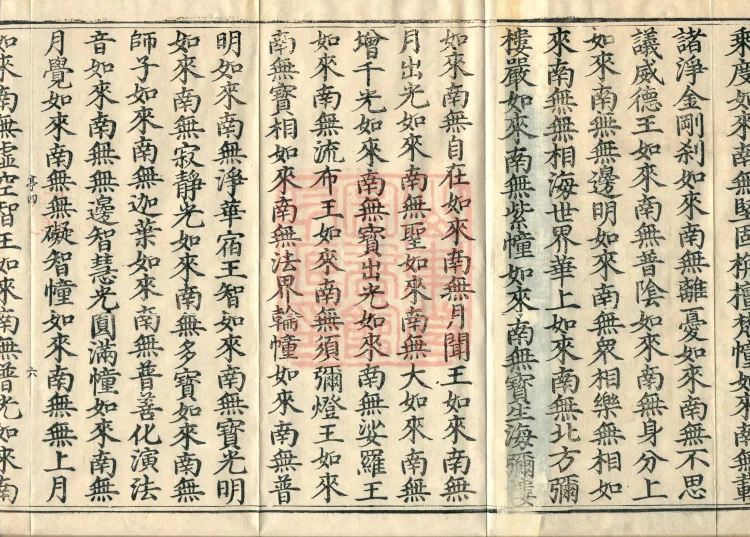 乘度如來南無堅固栴檀樹幢如來南無載
諸淨金剛刹如來南無離憂如來南無不思
議威德王如來南無普陰如來南無身分上
如來南無無邊明如來南無衆相樂無相如
來南無無相海世界華上如來南無北方彌
樓嚴如來南無紫幢如來南無寶生海彌樓
如來南無自在如來南無月聞王如來南無
月出光如來南無聖如來南無大如來南無
增千光如來南無寶出光如來南無娑羅王
如來南無流布王如來南無須彌燈王如來
南無寶相如來南無法界輪幢如來南無普
明如來南無淨華宿王智如來南無寶光明
如來南無寂靜光如來南無多寶如來南無
師子如來南無迦葉如來南無普善化演法
音如來南無無邊智慧光圓滿幢如來南無
月覺如來南無無礙智幢如來南無無上月
六
如來南無虛空智王如來南無普光如來南